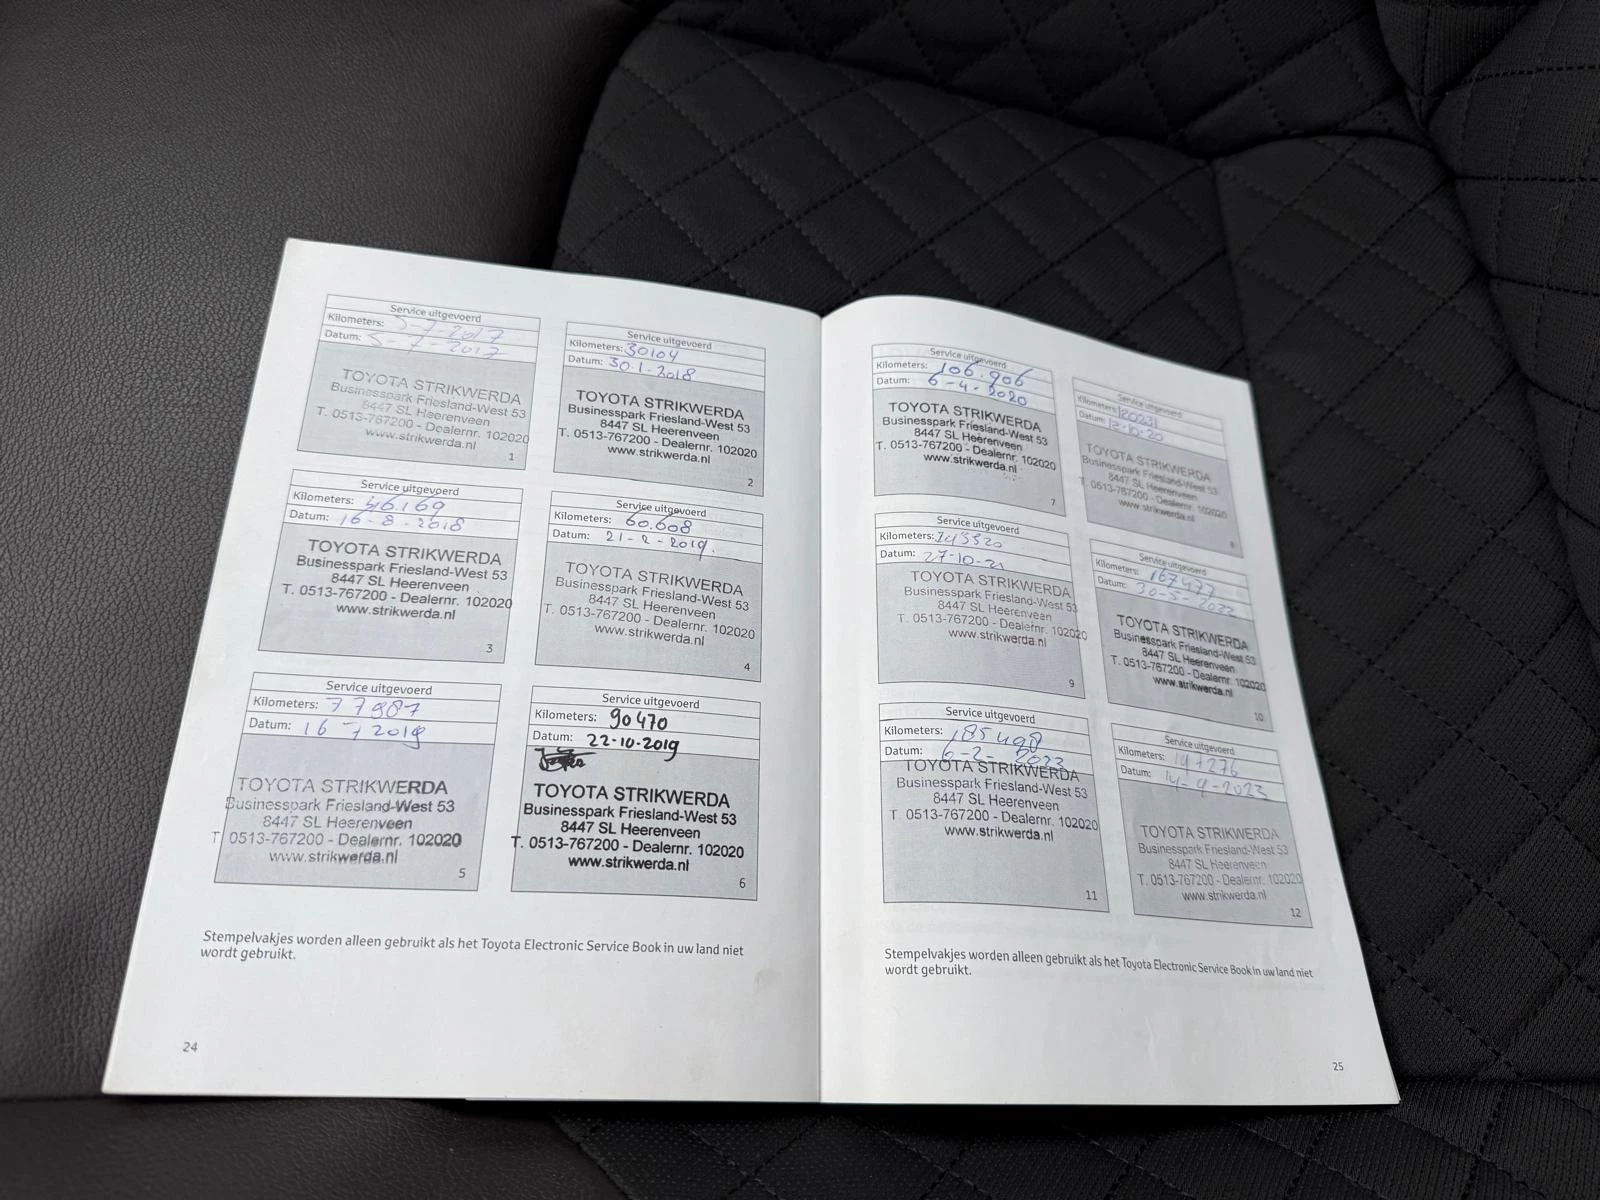 Service uitgevoerd
Kilometers: 3-7-2017
Datum: 3-7-2017
TOYOTA STRIKWERDA
Businesspark Friesland-West 53
8447 SL Heerenveen
T. 0513-767200 - Dealernr. 102020
www.strikwerda.nl
1
Service uitgevoerd
Kilometers: 30104
Datum: 30-1-2018
TOYOTA STRIKWERDA
Businesspark Friesland-West 53
8447 SL Heerenveen
T. 0513-767200 - Dealernr. 102020
www.strikwerda.nl
2
Service uitgevoerd
Kilometers: 46.169
Datum: 16-8-2018
TOYOTA STRIKWERDA
Businesspark Friesland-West 53
8447 SL Heerenveen
T. 0513-767200 - Dealernr. 102020
www.strikwerda.nl
3
Service uitgevoerd
Kilometers: 60.608
Datum: 21-2-2019.
TOYOTA STRIKWERDA
Businesspark Friesland-West 53
8447 SL Heerenveen
T. 0513-767200 - Dealernr. 102020
www.strikwerda.nl
4
Service uitgevoerd
Kilometers: 77987
Datum: 16-7 2019
TOYOTA STRIKWERDA
Businesspark Friesland-West 53
8447 SL Heerenveen
T 0513-767200 - Dealernr. 102020
www.strikwerda.nl
5
Service uitgevoerd
Kilometers: 90470
Datum: 22-10-2019
TOYOTA STRIKWERDA
Businesspark Friesland-West 53
8447 SL Heerenveen
T. 0513-767200 - Dealernr. 102020
www.strikwerda.nl
6
Stempelvakjes worden alleen gebruikt als het Toyota Electronic Service Book in uw land niet
wordt gebruikt.
24
Service uitgevoerd
Kilometers: 106.906
Datum: 6-4-2020
TOYOTA STRIKWERDA
Businesspark Friesland-West 53
8447 SL Heerenveen
T. 0513-767200 - Dealernr. 102020
www.strikwerda.nl
7
Service uitgevoerd
Kilometers: 120231
Datum: 12-10-20
TOYOTA STRIKWERDA
Businesspark Friesland-West 53
8447 SL Heerenveen
T. 0513-767200 - Dealernr. 102020
www.strikwerda.nl
8
Service uitgevoerd
Kilometers: 143520
Datum: 27-10-21
TOYOTA STRIKWERDA
Businesspark Friesland-West 53
8447 SL Heerenveen
T. 0513-767200 - Dealernr. 102020
www.strikwerda.nl
9
Service uitgevoerd
Kilometers: 167477
Datum: 30-5-2022
TOYOTA STRIKWERDA
Businesspark Friesland-West 53
8447 SL Heerenveen
T. 0513-767200 - Dealernr. 102020
www.strikwerda.nl
10
Service uitgevoerd
Kilometers: 185498
Datum: 6-2-2023
TOYOTA STRIKWERDA
Businesspark Friesland-West 53
8447 SL Heerenveen
T. 0513-767200 - Dealernr. 102020
www.strikwerda.nl
11
Service uitgevoerd
Kilometers:
Datum: 14-9-2023
TOYOTA STRIKWERDA
Businesspark Friesland-West 53
8447 SL Heerenveen
T. 0513-767200 - Dealernr. 102020
www.strikwerda.nl
12
Stempelvakjes worden alleen gebruikt als het Toyota Electronic Service Book in uw land niet
wordt gebruikt.
25